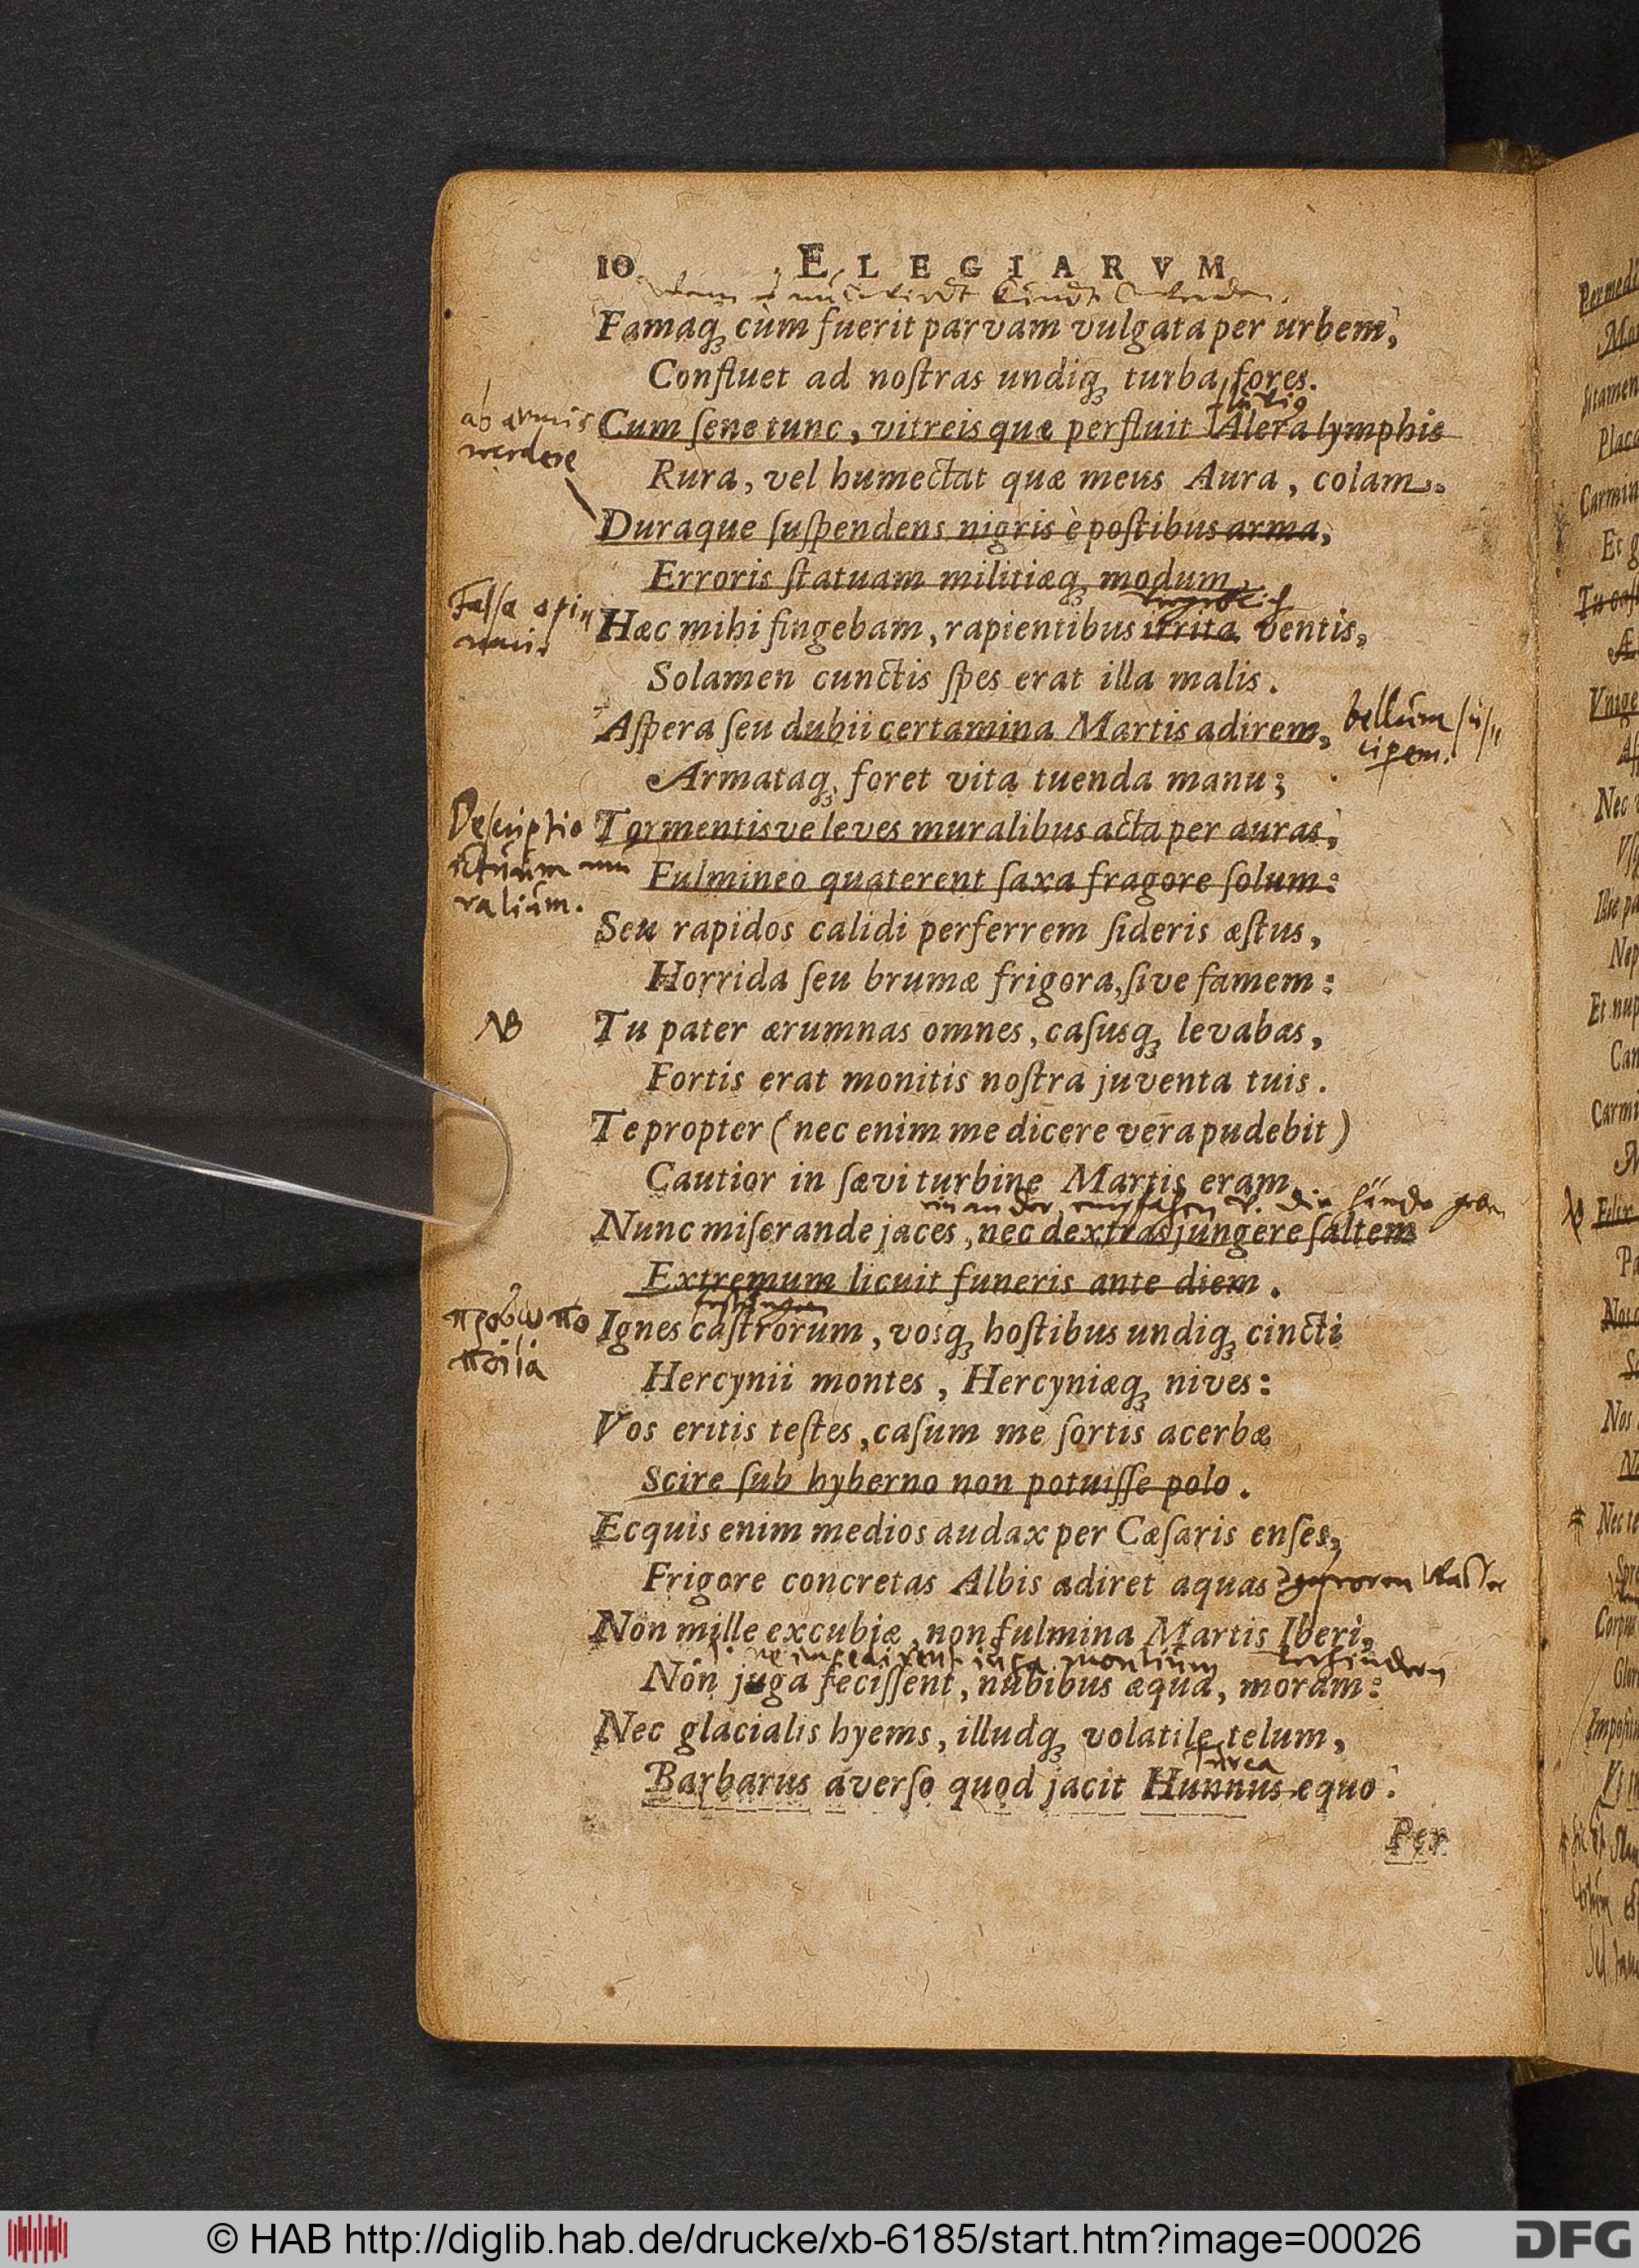 10 ELEGIARVM
Famaq́; cùm fuerit parvam vulgata per urbem,
Confluet ad noſtras undiq; turba fores.
ab armis
Cum ſene tunc, vitreis quæ perfluit Alera lymphis
Rura, vel humectat quæ meus Aura, colam.
Duraque ſuſpendens nigris è poſtibus arma,
Erroris ſtatuam militiæq; modum.
Falſa opi„
Hæc mihi fingebam, rapientibus irrita ventis,
Solamen cunctis ſpes erat illa malis.
Aſpera ſeu dubii certamina Martis adirem,
bellum ſuſ„
cipem.
Armataq; foret vita tuenda manu;
Deſcriptio
Tormentisve leves muralibus acta per auras,
Fulmineo quaterent ſaxa fragore ſolum:
ralium.
Seu rapidos calidi perferrem ſideris æſtus,
Horrida ſeu brumæ frigora, ſive famem:
NB
Tu pater ærumnas omnes, caſusq; levabas,
Fortis erat monitis noſtra juventa tuis.
Te propter (nec enim me dicere vera pudebit)
Cautior in ſævi turbine Martis eram.
Nunc miſerande jaces, nec dextras jungere ſaltem
Extremum licuit funeris ante diem.
Ignes caſtrorum, vosq; hoſtibus undiq; cincti
Hercynii montes, Hercyniæq; nives:
Vos eritis teſtes, caſum me ſortis acerbæ
Scire ſub hyberno non potuiſſe polo.
Ecquis enim medios audax per Cæſaris enſes,
Frigore concretas Albis adiret aquas?
Non mille excubiæ, non fulmina Martis Iberi,
juga montium verhindern
Non juga feciſſent, nubibus æqua, moram:
Nec glacialis hyems, illudq; volatile telum,
Turca
Barbarus averſo quod jacit Hunnus equo.
Per
© HAB http://diglib.hab.de/drucke/xb-6185/start.htm?image=00026
DFG